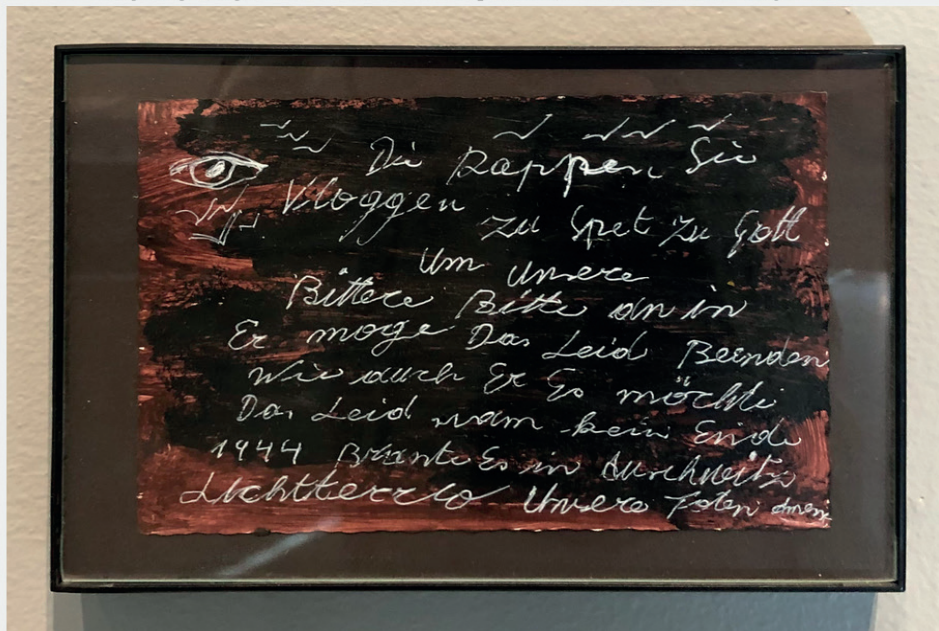 Die Rappen Sie
Vloggen
zu Spet zu Gott
Um Unsere
Bittere Bitte an in
Er moge Das Leid Beenden
Wie auch Er Es möchte
Das Leid nam kein Ende
1944 Brante Es in Auschwitz
Lichtterrlo Unsere Toten